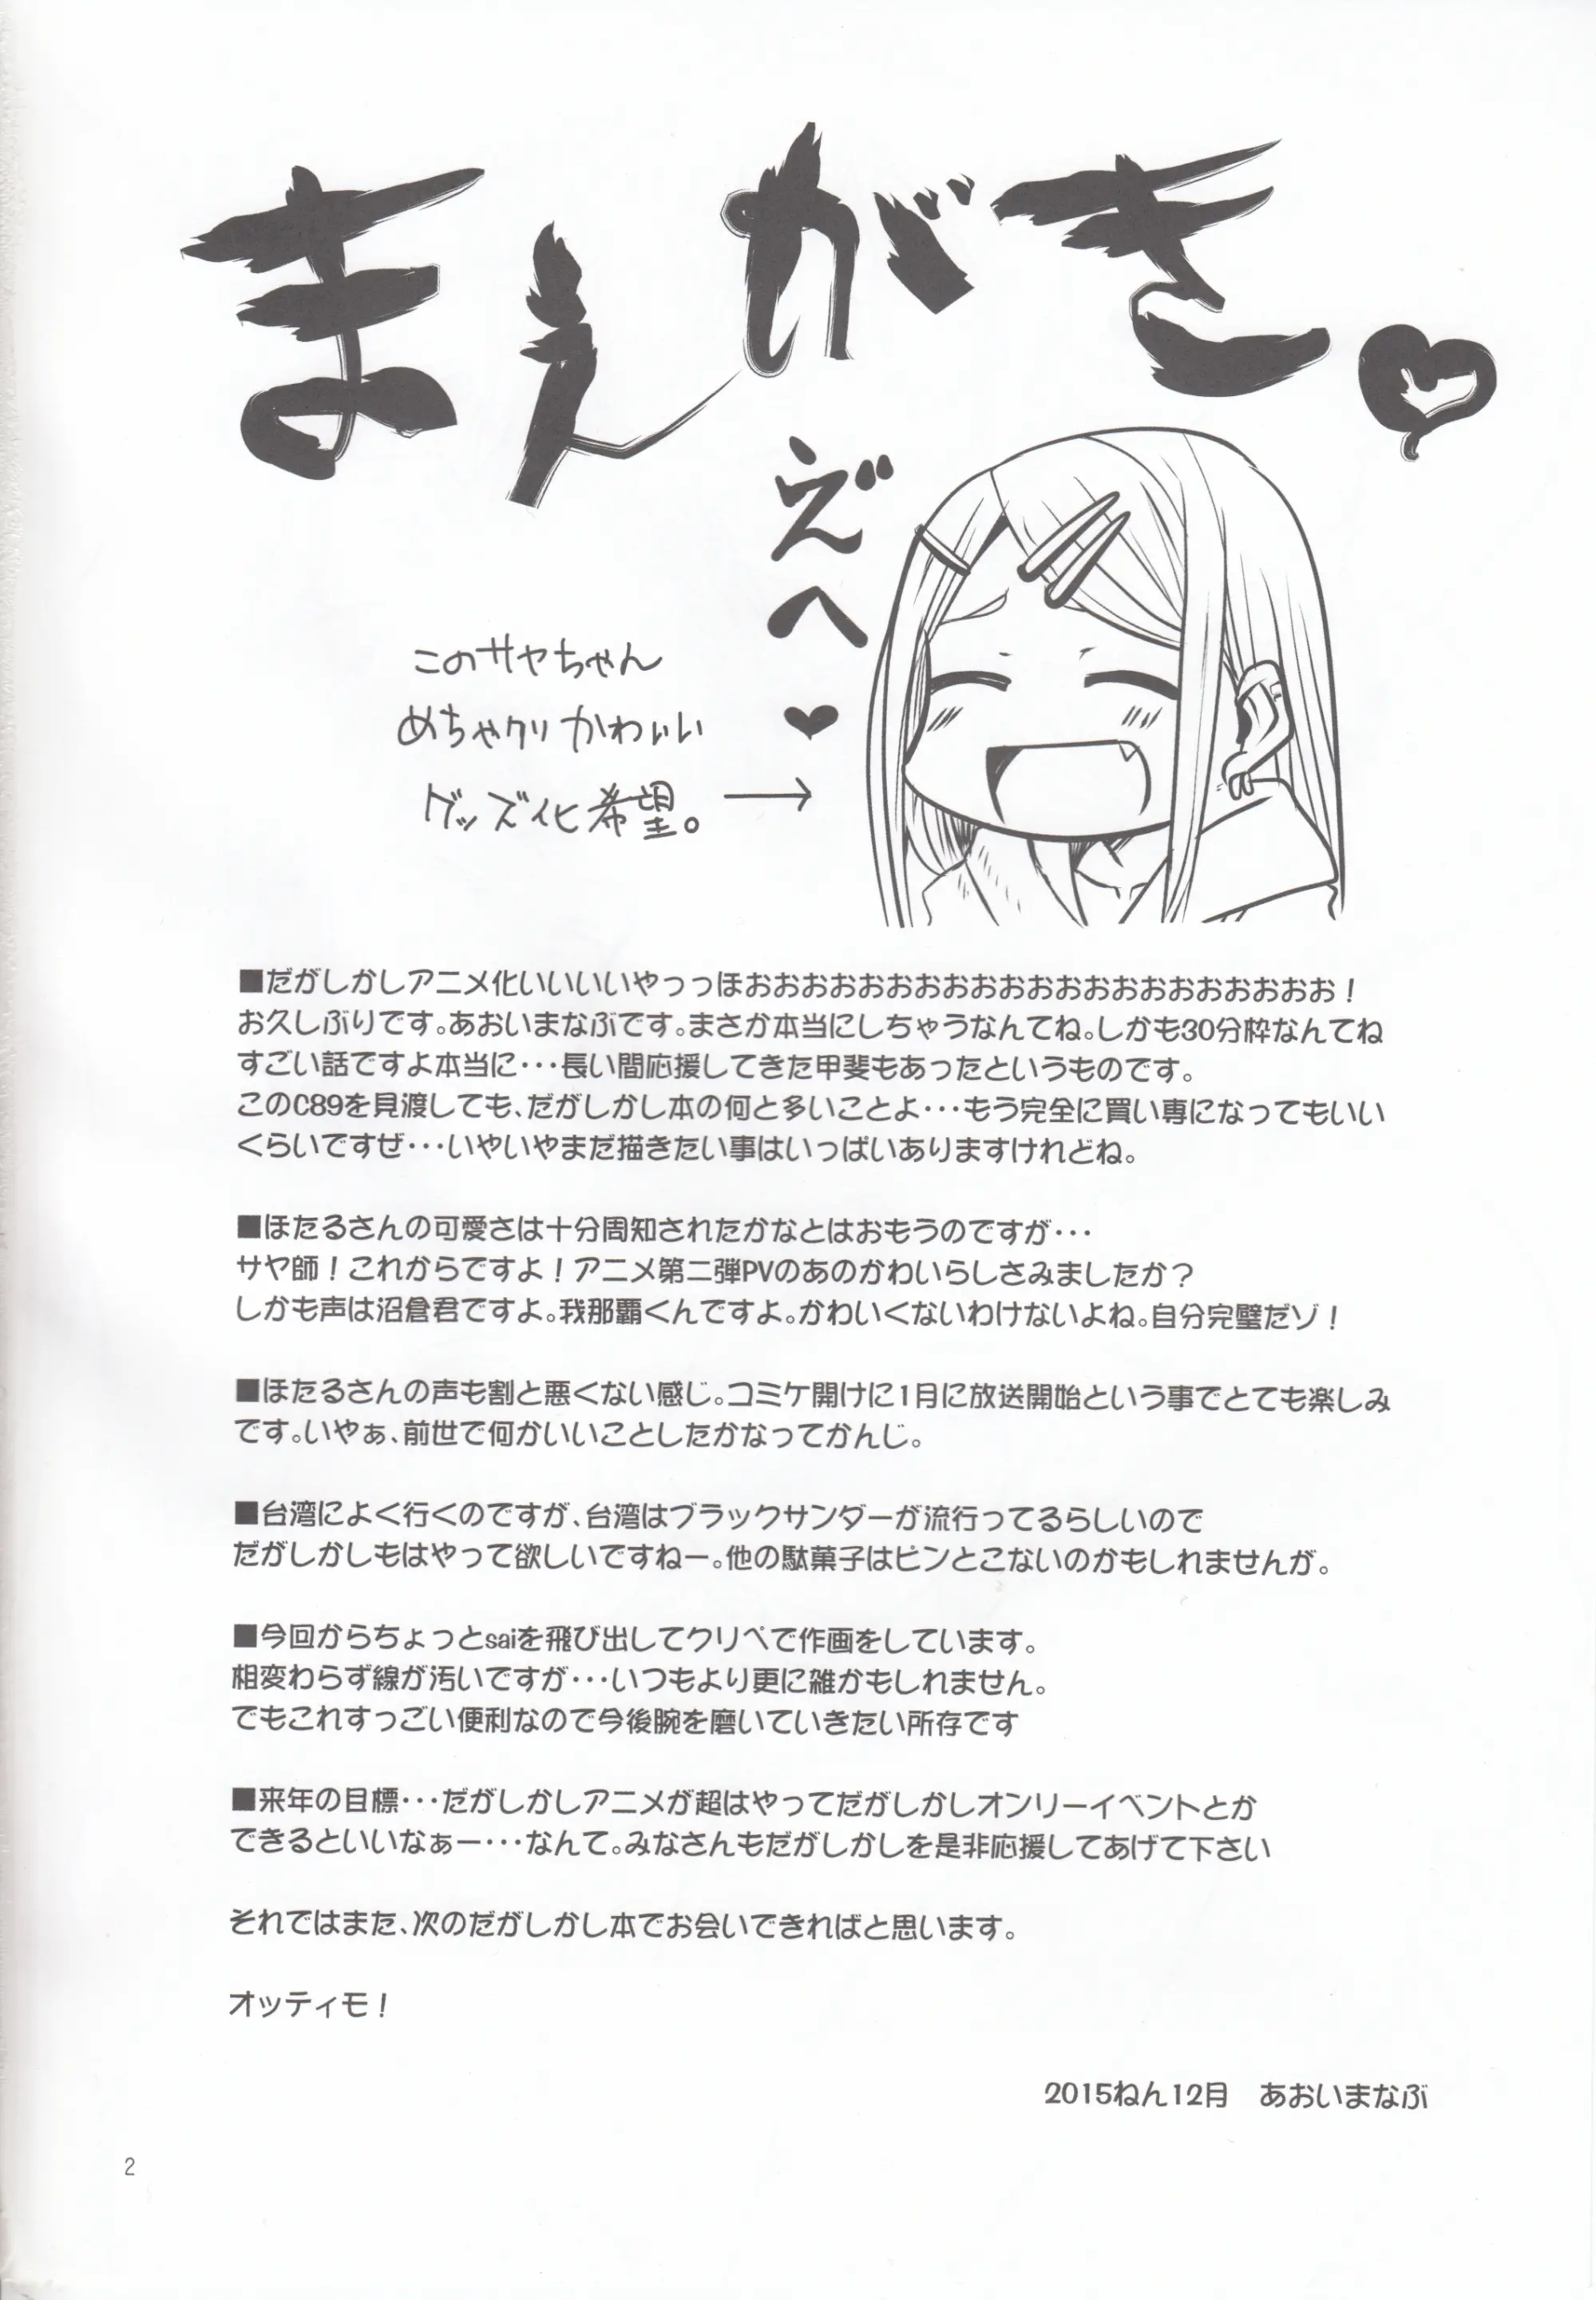 まえがき♥
え゛へ♥
このサヤちゃん
めちゃクソかわいい
グッズ化希望。→
■だがしかしアニメ化いいいいやっっほおおおおおおおおおおおおおおおおおおおおお！
お久しぶりです。あおいまなぶです。まさか本当にしちゃうなんてね。しかも30分枠なんてね
すごい話ですよ本当に・・・長い間応援してきた甲斐もあったというものです。
このC89を見渡しても、だがしかし本の何と多いことよ・・・もう完全に買い専になってもいい
くらいですぜ・・・いやいやまだ描きたい事はいっぱいありますけれどね。
■ほたるさんの可愛さは十分周知されたかなとはおもうのですが・・・
サヤ師！これからですよ！アニメ第二弾PVのあのかわいらしさみましたか？
しかも声は沼倉君ですよ。我那覇くんですよ。かわいくないわけないよね。自分完璧だゾ！
■ほたるさんの声も割と悪くない感じ。コミケ開けに1月に放送開始という事でとても楽しみ
です。いやぁ、前世で何かいいことしたかなってかんじ。
■台湾によく行くのですが、台湾はブラックサンダーが流行ってるらしいので
だがしかしもはやって欲しいですねー。他の駄菓子はピンとこないのかもしれませんが。
■今回からちょっとsaiを飛び出してクリペで作画をしています。
相変わらず線が汚いですが・・・いつもより更に雑かもしれません。
でもこれすっごい便利なので今後腕を磨いていきたい所存です
■来年の目標・・・だがしかしアニメが超はやってだがしかしオンリーイベントとか
できるといいなぁー・・・なんて。みなさんもだがしかしを是非応援してあげて下さい
それではまた、次のだがしかし本でお会いできればと思います。
オッティモ！
2015ねん12月　あおいまなぶ
2